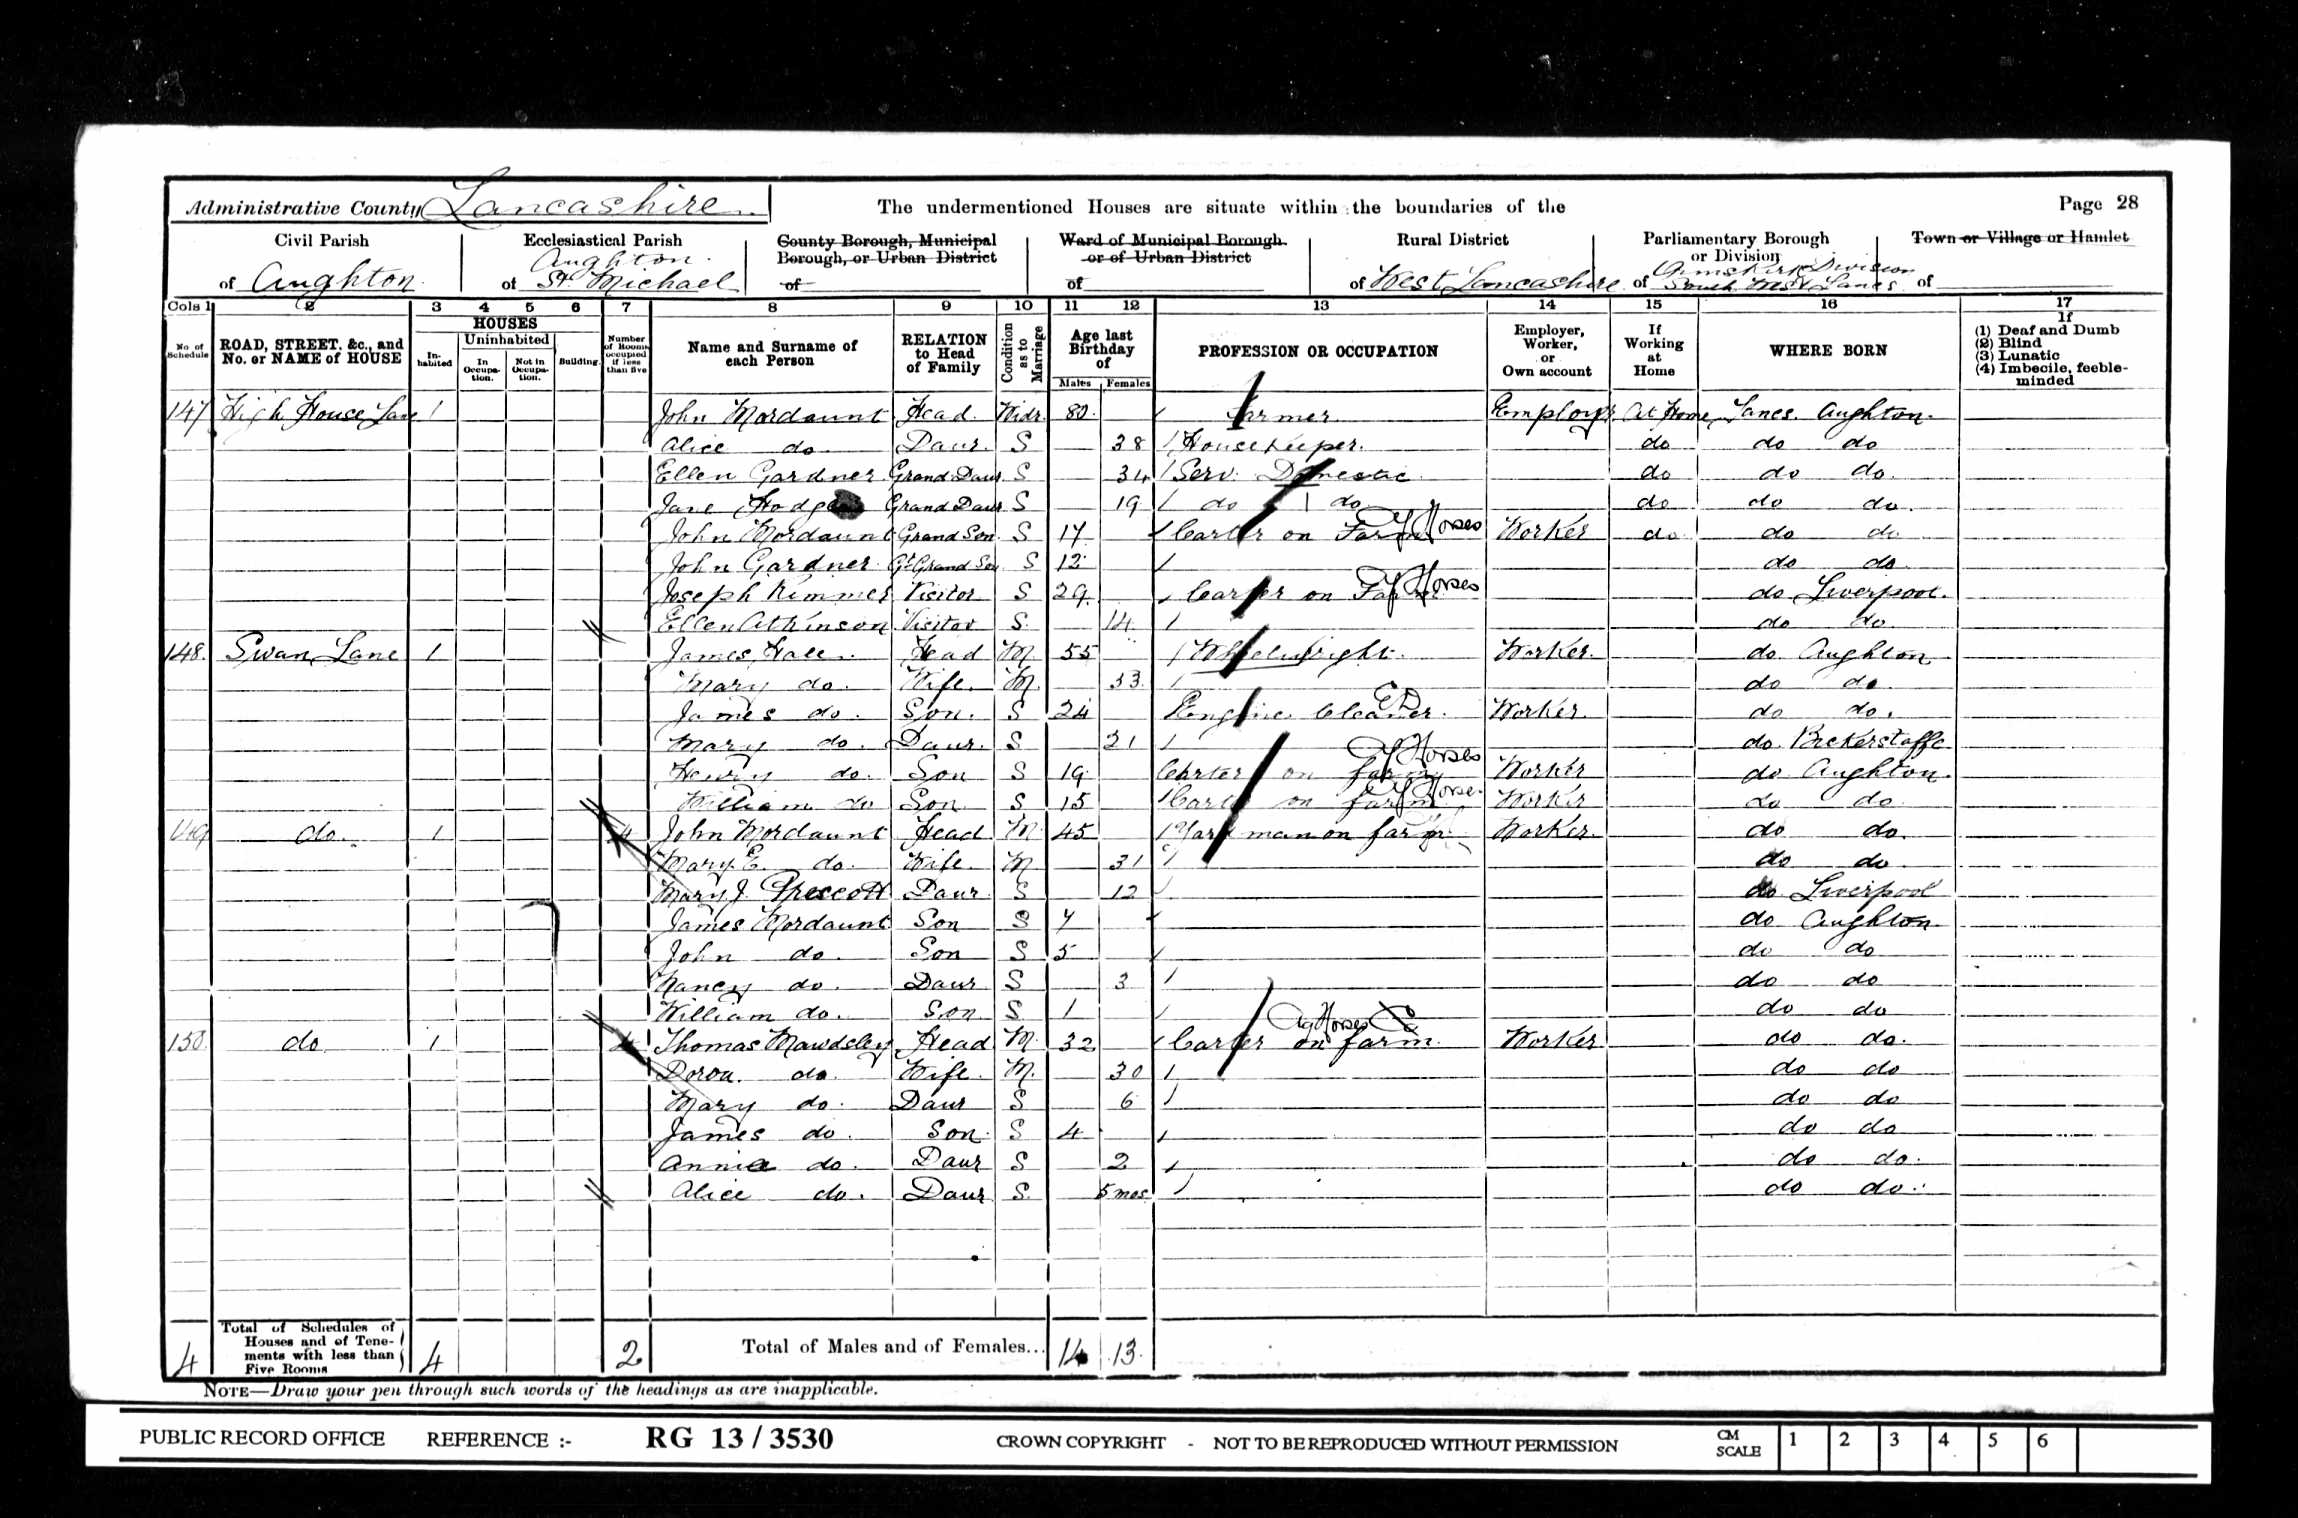 Administrative County Lancashire The undermentioned Houses are situate within the boundaries of the Page 28
Civil Parish of Aughton
Ecclesiastical Parish of Aughton St Michael
County Borough, Municipal Borough, or Urban District of
Ward of Municipal Borough or of Urban District of
Rural District of West Lancashire
Parliamentary Borough or Division of Ormskirk Division South West Lancs
Town or Village or Hamlet of
Cols 1 2 3 4 5 6 7 8 9 10 11 12 13 14 15 16 17
No. of Schedule
ROAD, STREET, &c., and No. or NAME of HOUSE
HOUSES
Inhabited
Uninhabited
In Occupation.
Not in Occupation.
Building.
Number of Rooms occupied if less than five
Name and Surname of each Person
RELATION to Head of Family
Condition as to Marriage
Age last Birthday of
Males Females
PROFESSION OR OCCUPATION
Employer, Worker, or Own account
If Working at Home
WHERE BORN
If
(1) Deaf and Dumb
(2) Blind
(3) Lunatic
(4) Imbecile, feeble-minded
147 High House Lane 1 John Mordaunt Head Widr 80 Farmer Employer At Home Lancs. Aughton
Alice do Daur. S 38 Housekeeper. do do do
Ellen Gardner Grand Daur S 34 Serv. Domestic do do do
Jane Grand Daur S 19 do do do do do
John Mordaunt Grand Son S 17 Carter on Farm Horses Worker do do do
John Gardner Gt Grand Son S 12 do do
Joseph Rimmer Visitor S 29 Carter on Farm Horses do Liverpool.
Ellen Atkinson Visitor S 14 do do
148. Swan Lane 1 James Hale Head M 55 Wheelwright. Worker. do Aughton
Mary do. Wife. M. 33 do do.
James do. Son. S 24 Engine Cleaner. Worker. do do.
Mary do. Daur. S 21 do Bickerstaffe
Henry do. Son S 19 Carter on farm Horses Worker do Aughton
William do Son S 15 Carter on farm Horse Worker do do.
149 do. 1 4 John Mordaunt Head M 45 Yardman on farm Worker. do do.
Mary E. do. Wife M 31 do do
Mary J. Prescott Daur S 12 do Liverpool
James Mordaunt Son S 7 do Aughton
John do. Son S 5 do do
Nancy do. Daur S 3 do do
William do. Son S 1 do do
150. do 1 4 Thomas Mawdsley Head M. 32 Carter on farm Ag Horses Worker do do.
do. Wife. M. 30 do do
Mary do. Daur S 6 do do
James do. Son S 4 do do
Annie do. Daur S 2 do do.
Alice do. Daur S. 5 mos do do.
4 Total of Schedules of Houses and of Tenements with less than Five Rooms 4 2 Total of Males and of Females... 14 13
NOTE—Draw your pen through such words of the headings as are inapplicable.
PUBLIC RECORD OFFICE REFERENCE :- RG 13 / 3530 CROWN COPYRIGHT - NOT TO BE REPRODUCED WITHOUT PERMISSION CM SCALE 1 2 3 4 5 6